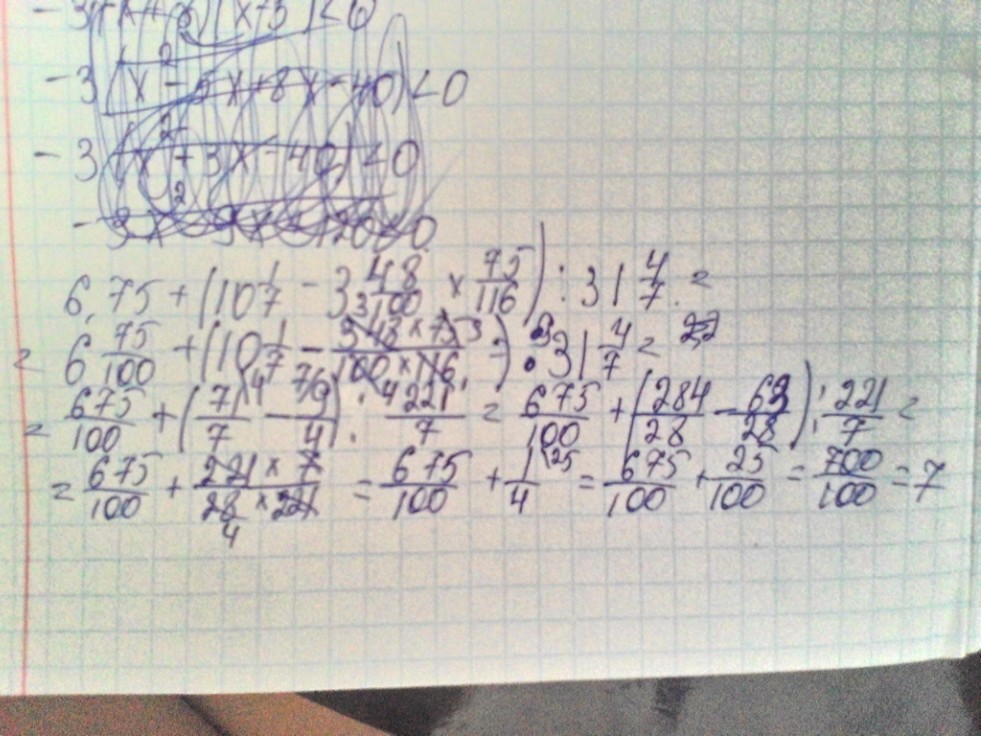 -3(x+8)(x-5)<0
-3(x²-5x+8x-40)<0
-3(x²+3x-40)<0
-3x²-9x+120<0
6,75+(10 1/7 - 3 48/100 × 75/116) : 31 4/7 =
= 6 75/100 + (10 1/7 - 348×75/100×116) : 31 4/7 =
= 675/100 + (71/7 - 9/4) : 221/7 = 675/100 + (284/28 - 63/28) : 221/7 =
= 675/100 + 221×7/28×221 = 675/100 + 1/4 = 675/100 + 25/100 = 700/100 = 7